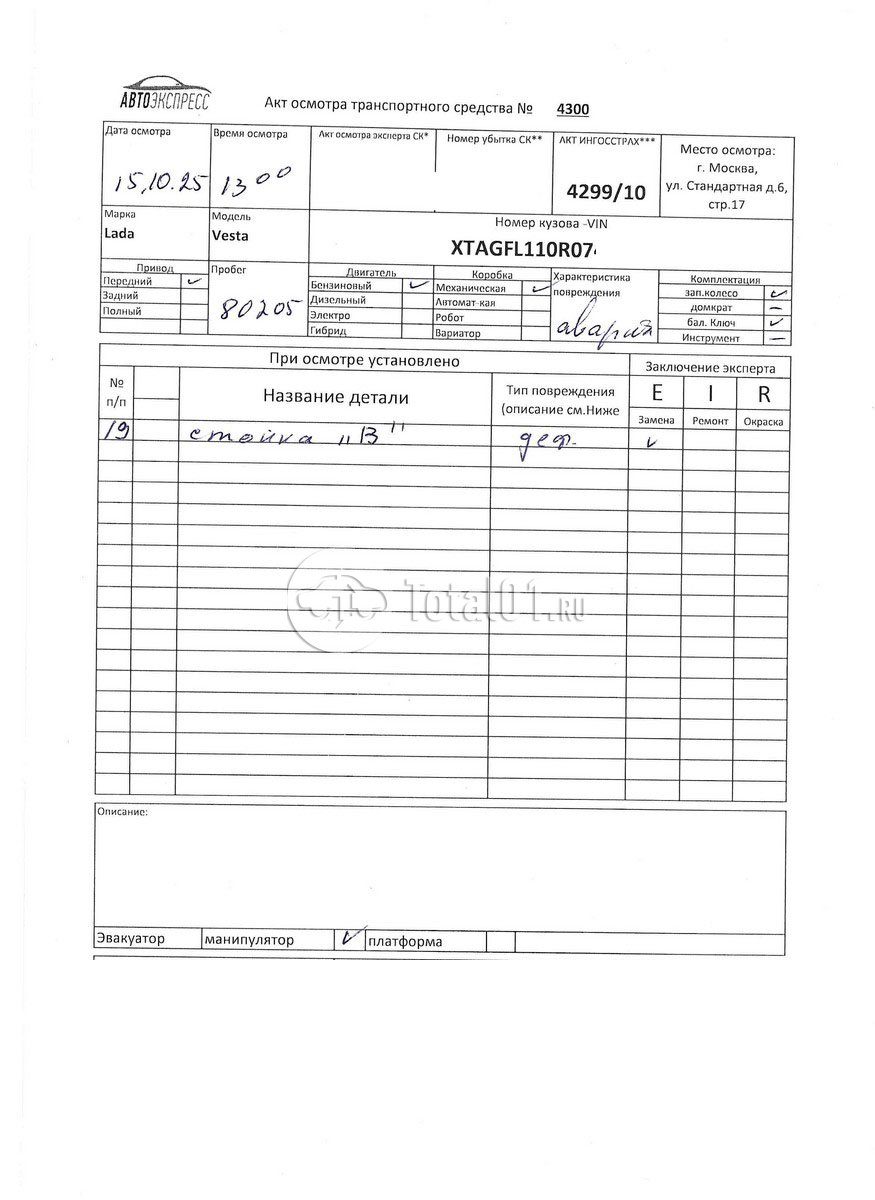 АВТОЭКСПРЕСС
Акт осмотра транспортного средства № 4300
Дата осмотра
15.10.25
Время осмотра
13 00
Акт осмотра эксперта СК*
Номер убытка СК**
АКТ ИНГОССТРАХ***
4299/10
Место осмотра:
г. Москва,
ул. Стандартная д.6,
стр.17
Марка
Lada
Модель
Vesta
Номер кузова -VIN
XTAGFL110R07
Привод
Передний ✓
Задний
Полный
Пробег
80205
Двигатель
Бензиновый ✓
Дизельный
Электро
Гибрид
Коробка
Механическая ✓
Автомат-кая
Робот
Вариатор
Характеристика
повреждения
авария
Комплектация
зап.колесо ✓
домкрат –
бал. Ключ ✓
Инструмент –
При осмотре установлено
Заключение эксперта
№
п/п
Название детали
Тип повреждения
(описание см.Ниже
E I R
Замена Ремонт Окраска
19 стойка „В" деф. ✓
Total01.RU
Описание:
Эвакуатор манипулятор ✓ платформа